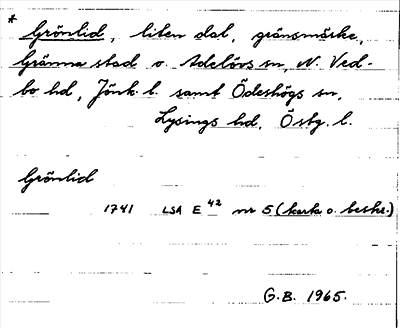 * Grönlid, liten dal, gränsmärke,
Gränna stad o. Adelövs sn, N. Ved-
bo hd, Jönk. l. samt Ödeshögs sn,
Lysings hd, Östg. l.
Grönlid
1741 LSA E 42 nr 5 (karta o. beskr.)
G.B. 1965.